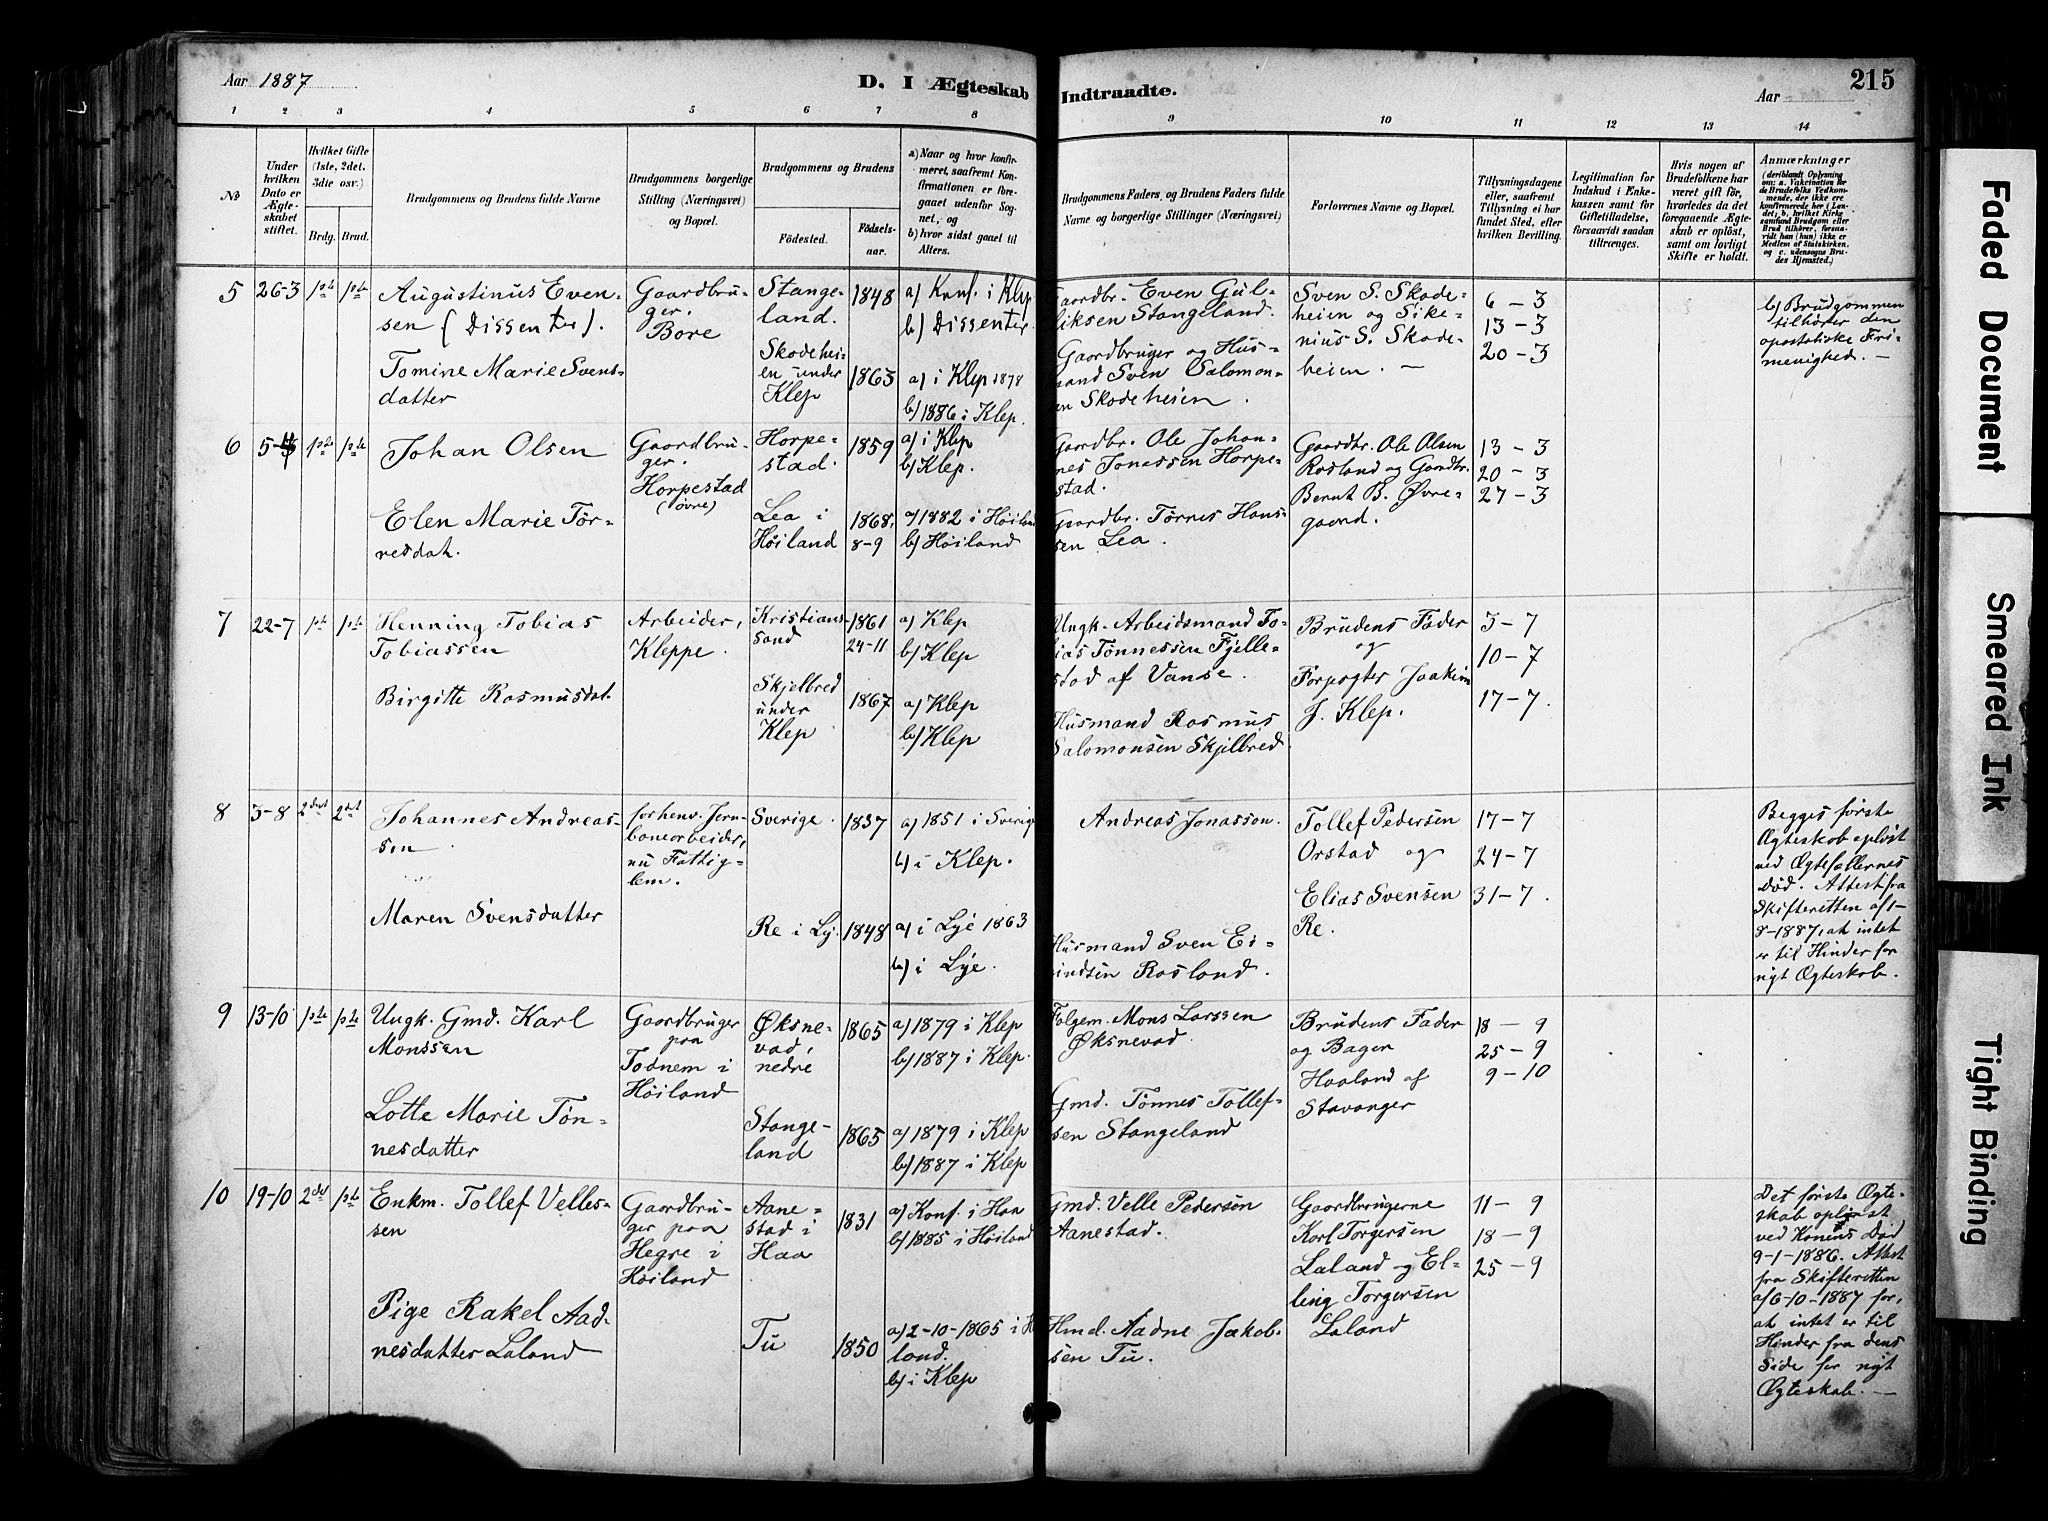 Aar 1887
D. I Ægteskab Indtraadte.
Aar
215
1 2 3 4 5 6 7 8 9 10 11 12 13 14
No
Under hvilken Dato er Ægteskabet stiftet.
Hvilket Gifte (1ste, 2det, 3die osv.)
Brdg. Brud.
Brudgommens og Brudens fulde Navne
Brudgommens borgerlige Stilling (Næringsvei) og Bopæl.
Brudgommens og Brudens
Fødested. Fødsels-aar.
a) Naar og hvor konfirmeret, saafremt Konfirmationen er foregaaet udenfor Sognet, og
b) hvor sidst gaaet til Alters.
Brudgommens Faders, og Brudens Faders fulde Navne og borgerlige Stillinger (Næringsvei)
Forlovernes Navne og Bopæl.
Tillysningsdagene eller, saafremt Tillysning ei har fundet Sted, efter hvilken Bevilling.
Legitimation for Indskud i Enkekassen samt for Giftetilladelse, forsaavidt saadan tiltrænges.
Hvis nogen af Brudefolkene har været gift før, hvorledes da det foregaaende Ægteskab er opløst, samt om lovligt Skifte er holdt.
Anmærkninger (deriblandt Oplysning om: a. Vakcination for de Brudefolks Vedkommende, der ikke ere konfirmerede her i Landet; b. hvilket Kirkesamfund Brudgom eller Brud tilhører, forsaavidt han (hun) ikke er Medlem af Statskirken, og c. udensogns Brudes Hjemsted.)
5
26-3
1ste
1ste
Augustinus Even-
sen (Dissenter).
Tomine Marie Svens-
datter
Gaardbru-
ger.
Bore
Stange-
land.
Skodehei-
en under
Klep
1848
1863
a) Konf. i Klep
b) Dissenter.
a) i Klep 1878
b) 1886 i Klep.
Gaardbr. Even Gul-
liksen Stangeland.
Gaardbruger og Hus-
mand Sven Salomon-
sen Skodeheien.
Sven S. Skode-
heien og Sike-
nius S. Skode-
heien. —
6 – 3
13 – 3
20 – 3
b) Brudgommen
tilhører den
apostoliske Fri-
menighed. —
6
1ste
1ste
Johan Olsen
Elen Marie Tør-
resdat.
Gaardbru-
ger.
Horpestad
(øvre)
Horpe-
stad.
Lea i
Høiland
1859
1868,
8-9
a) i Klep
b) Klep.
a) 1882 i Høiland
b) Høiland
Gaardbr. Ole Johan-
nes Jonassen Horpe-
stad.
Gaardbr. Tørres Hans-
sen Lea.
Gaardbr. Ole Olsen
Rosland og Gaardbr.
Bernt B. Øvre-
gaard.
13 – 3
20 – 3
27 – 3
7
22-7
1ste
1ste
Henning Tobias
Tobiassen
Birgitte Rasmusdat.
Arbeider,
Kleppe.
Kristians-
sand
Skjelbred
under
Klep
1861
24-11
1867
a) Klep
b) Klep
a) Klep
b) Klep
Ungk. Arbeidsmand To-
bias Tønnessen Fjelle-
stad af Vanse.
Husmand Rasmus
Salomonsen Skjelbred.
Brudens Fader
og
Forpagter Joakim
J. Klep.
3 – 7
10 – 7
17 – 7.
8
3-8
2det
2det
Johannes Andreas-
sen
Maren Svensdatter
forhenv. Jern-
banearbeider,
nu Fattig-
lem.
Sverige.
Re i Ly.
1837
1848
a) 1851 i Sverige
b) i Klep.
a) i Lye 1863
b) i Lye.
Andreas Jonasson.
Husmand Sven Ei-
vindsen Rosland.
Tollef Pedersen
Orstad og
Elias Svensen
Re.
17 – 7
24 – 7
31 – 7.
Begges første
Ægteskab opløst
ved Ægtefællernes
Død. Attest fra
Skifteretten af 1-
8-1887, at intet
er til Hinder for
nyt Ægteskab.
9
13-10
1ste
1ste
Ungk. Gmd. Karl
Monssen
Lotte Marie Tøn-
nesdatter
Gaardbruger
paa
Todnem i
Høiland
Øksne-
vad,
nedre
Stange-
land
1865
1865
a) 1879 i Klep
b) 1887 i Klep.
a) 1879 i Klep
b) 1887 i Klep
Følgem. Mons Larssen
Øksnevad.
Gmd. Tønnes Tollef-
sen Stangeland
Brudens Fader
og Bager
Haaland af
Stavanger
18 – 9
25 – 9
9 – 10
10
19-10
2det
1ste
Enkm. Tollef Velles-
sen
Pige Rakel Aad-
nesdatter Laland
Gaardbru-
ger paa
Hegre i
Høiland
Aane-
stad i
Haa
Tu
1831
1850
a) Konf. i Haa
b) 1885 i Høiland
a) 2-10-1865 i H
land.
b) i Klep
Gmd. Velle Pedersen
Aanestad.
Hmd. Aadne Jakob-
sen Tu.
Gaardbrugerne
Karl Torgersen
Laland og El-
ling Torgersen
Laland
11 – 9
18 – 9
25 – 9
Det første Ægte-
skab opløst
ved Konens Død
9-1-1886. Attest
fra Skifteretten
af 6-10-1887 for,
at intet er til
Hinder fra dens
Side for nyt
Ægteskab. —
Faded Document
Smeared Ink
Tight Binding